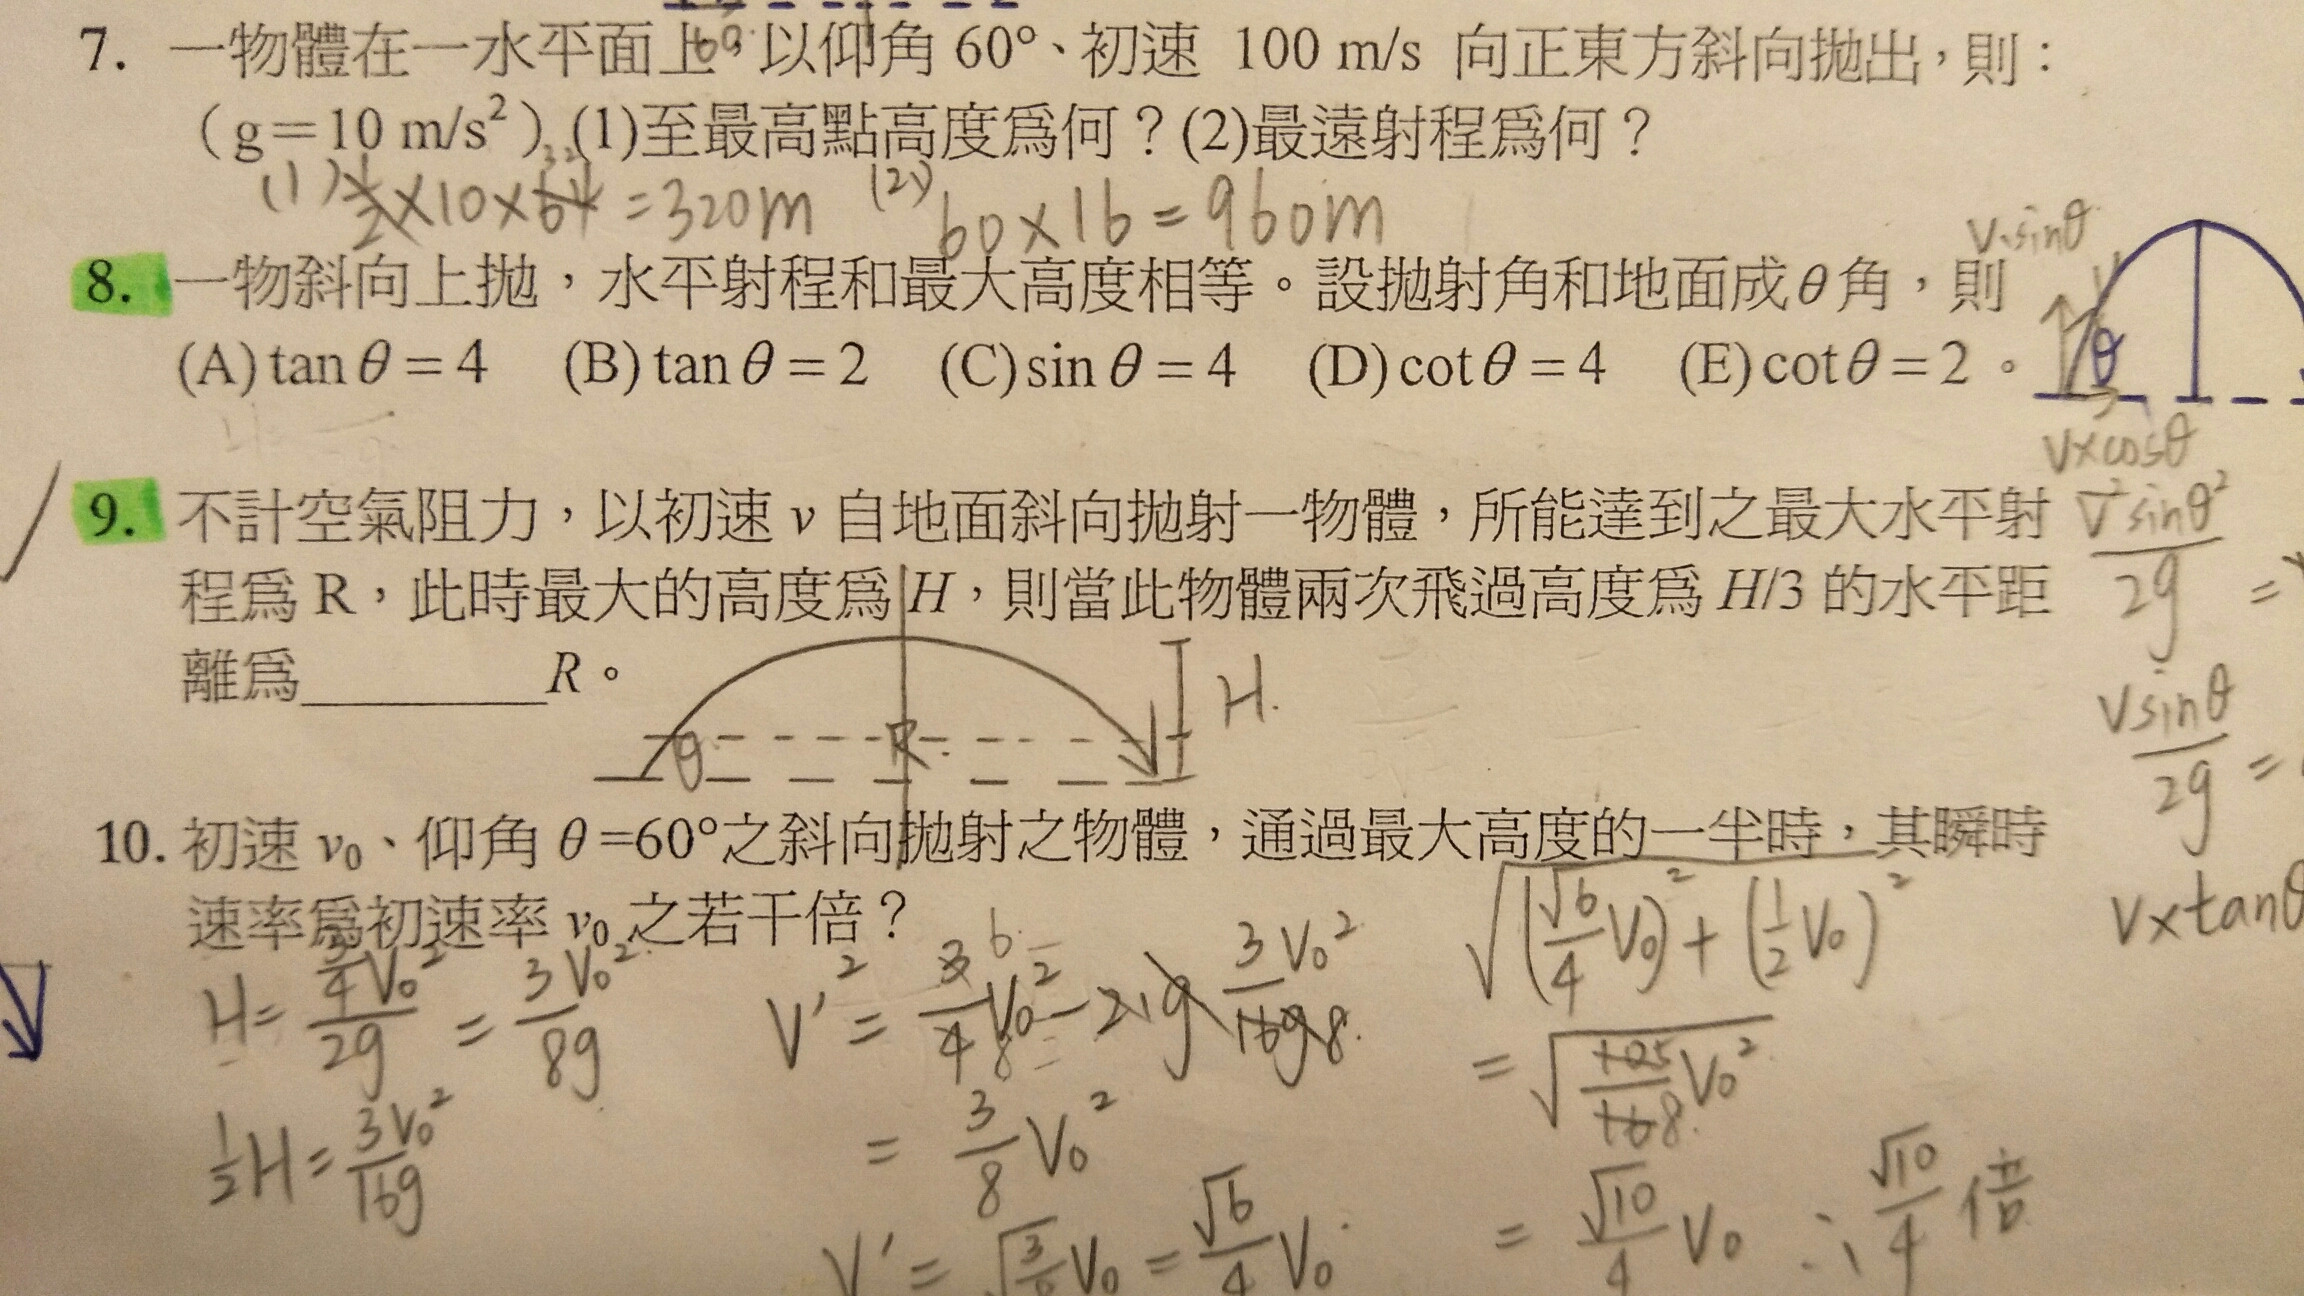 7. 一物體在一水平面上，以仰角 60°、初速 100 m/s 向正東方斜向拋出，則：
（g＝10 m/s²）(1)至最高點高度爲何？(2)最遠射程爲何？
(1) 1/2×10×64 = 320m (2) 60×16 = 960m
v·sinθ
8. 一物斜向上拋，水平射程和最大高度相等。設拋射角和地面成θ角，則
(A) tan θ = 4 (B) tan θ = 2 (C) sin θ = 4 (D) cot θ = 4 (E) cot θ = 2。
θ
v×cosθ
9. 不計空氣阻力，以初速 v 自地面斜向拋射一物體，所能達到之最大水平射
程爲 R，此時最大的高度爲 H，則當此物體兩次飛過高度爲 H/3 的水平距
離爲________R。
v²sinθ²/2g =
θ R H.
vsinθ/2g =
10. 初速 v₀、仰角 θ =60°之斜向拋射之物體，通過最大高度的一半時，其瞬時
速率爲初速率 v₀ 之若干倍？
v×tanθ
H = (3/4 V₀²)/2g = 3V₀²/8g
√((√6/4 V₀)² + (1/2 V₀)²)
½H = 3V₀²/16g
= 3/8 V₀²
= √10/4 V₀ ∴ √10/4 倍